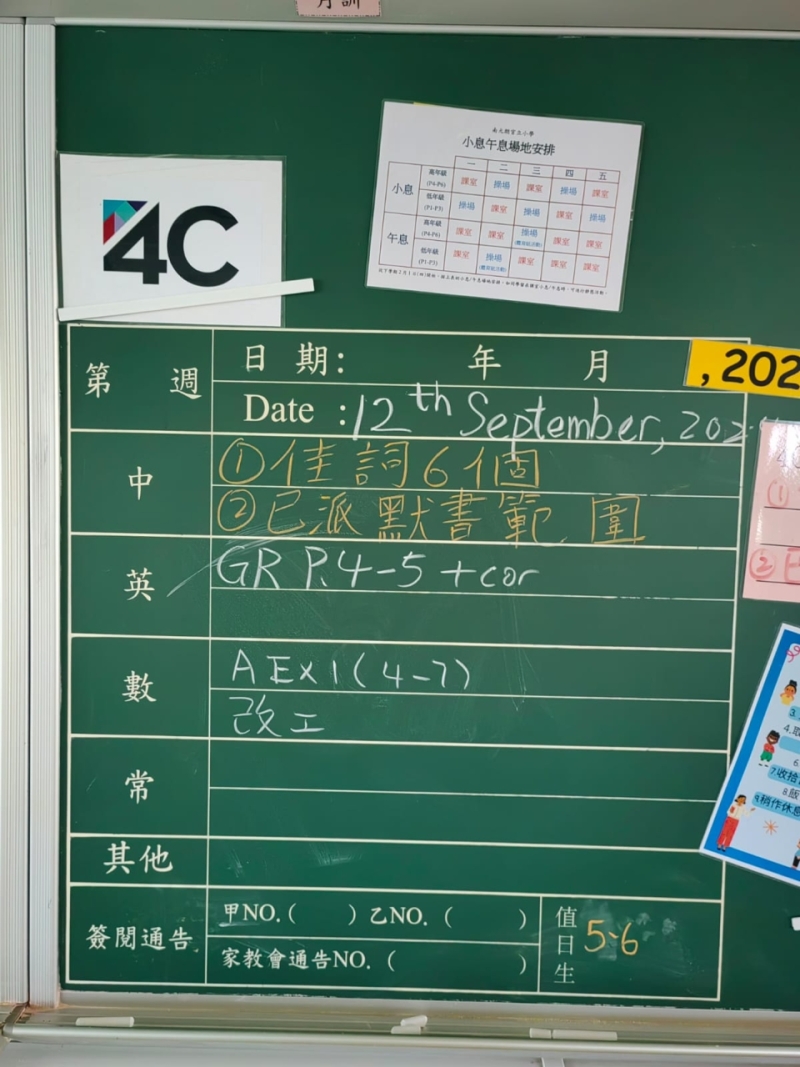 4C
小息午息場地安排
一 二 三 四 五
小息 高年級 (P4-P6) 課室 操場 課室 操場 課室
低年級 (P1-P3) 操場 課室 操場 課室 操場
午息 高年級 (P4-P6) 課室 課室 操場 課室 課室
低年級 (P1-P3) 課室 操場 課室 課室 課室
第 週
日 期: 年 月
, 202
Date : 12th September, 202
中
①佳詞6個
②已派默書範圍
英
GR P.4-5 + cor
數
A Ex1(4-7)
改工
常
其他
簽閱通告
甲NO.( ) 乙NO. ( )
家教會通告NO. ( )
值日生
5、6
①
②
7.收拾